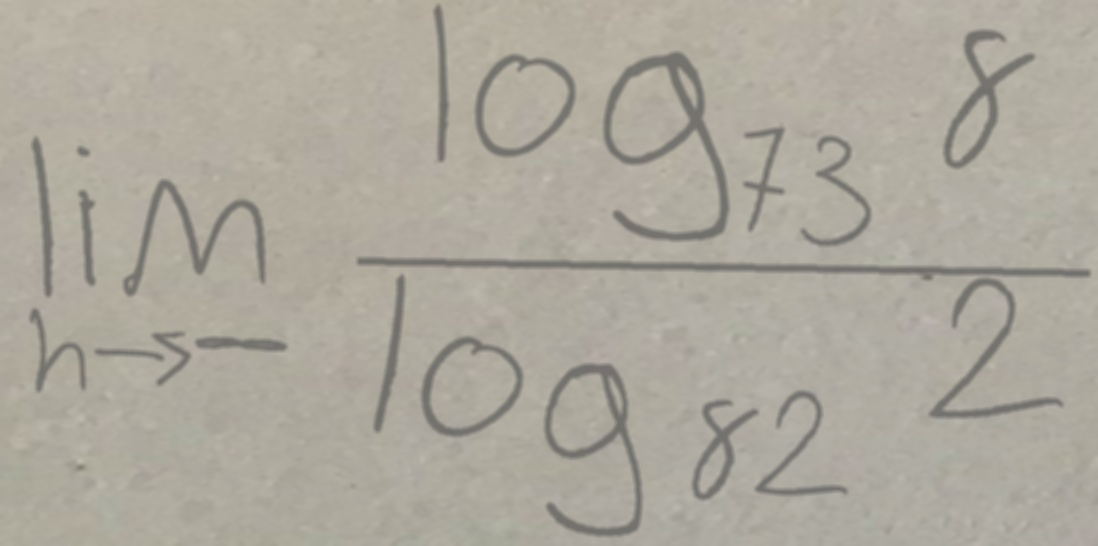 lim_{h→-} \frac{log_{73} 8}{log_{82} 2}